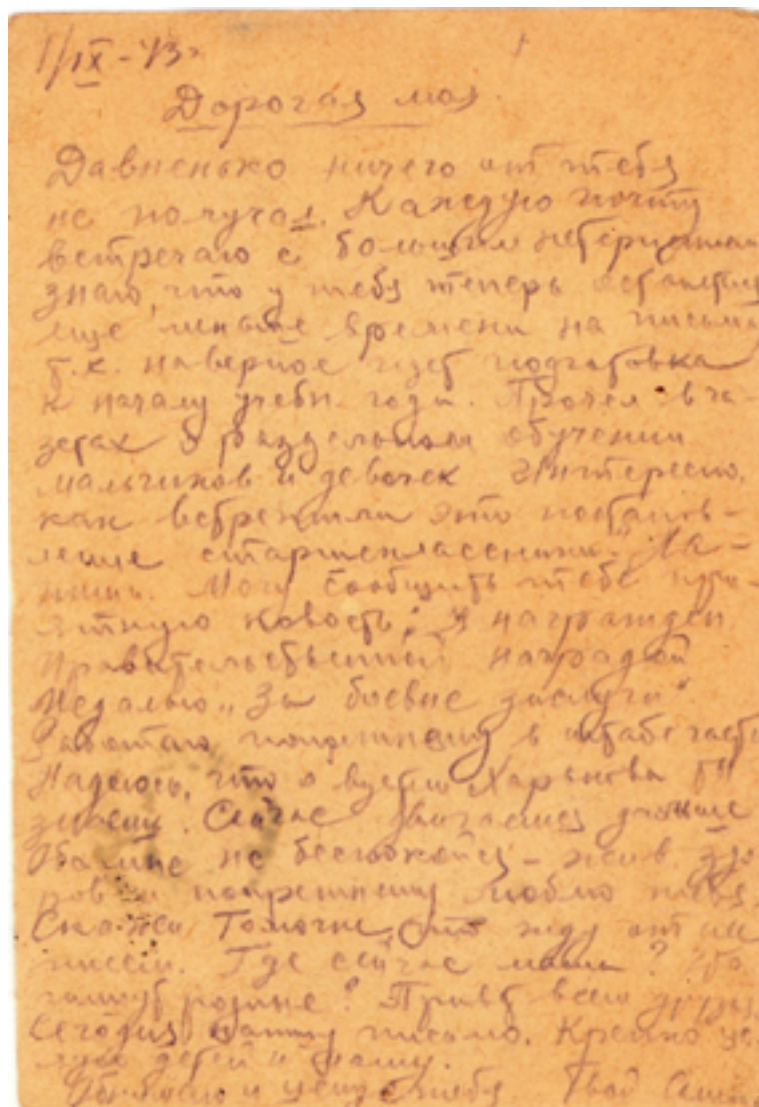 1/IX-43г
Дорогая моя.
Давненько ничего от тебя
не получал. Каждую почту
встречаю с большим нетерпением
знаю, что у тебя теперь остается
еще меньше времени на письма
т.к. наверное идет подготовка
к началу учебн. года. Прочел в га-
зетах о раздельном обучении
мальчиков и девочек Интересно,
как встретили это постанов-
ление старшеклассники.
Могу сообщить тебе при-
ятную новость: я награжден
правительственной наградой
Медалью „За боевые заслуги“.
Работаю попрежнему в штабе части
Надеюсь, что о взятии Харькова ты
знаешь. Сейчас двигаемся дальше
Обо мне не беспокойся - жив, здо-
ров и попрежнему люблю тебя.
Скажи Томочке, что жду от нее
писем. Где сейчас мама?
родине? Привет всем друзьям
Сегодня письмо. Крепко це-
лую детей и маму.
Обнимаю и целую тебя. Твой